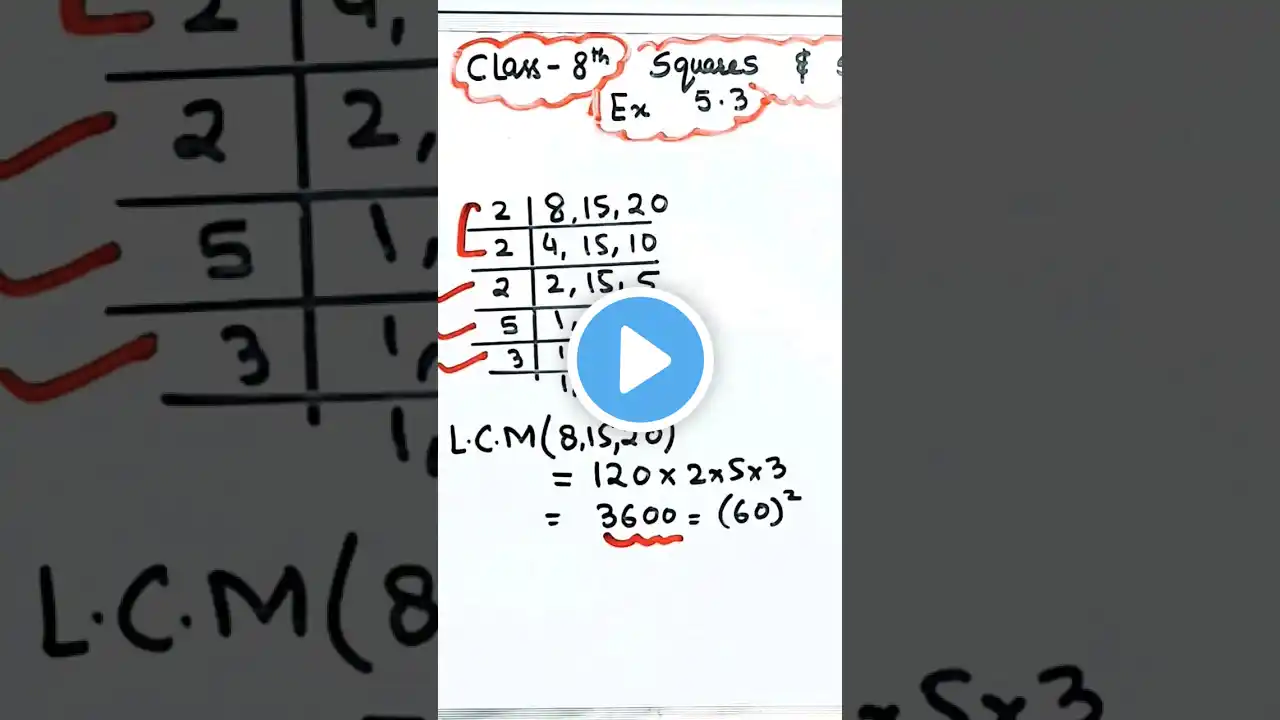 Class - 8th Squares &
Ex 5.3
2 | 8, 15, 20
2 | 4, 15, 10
2 | 2, 15, 5
5 | 1,
3 | 1
1,
L.C.M (8,15,20)
= 120 × 2 × 5 × 3
= 3600 = (60)²